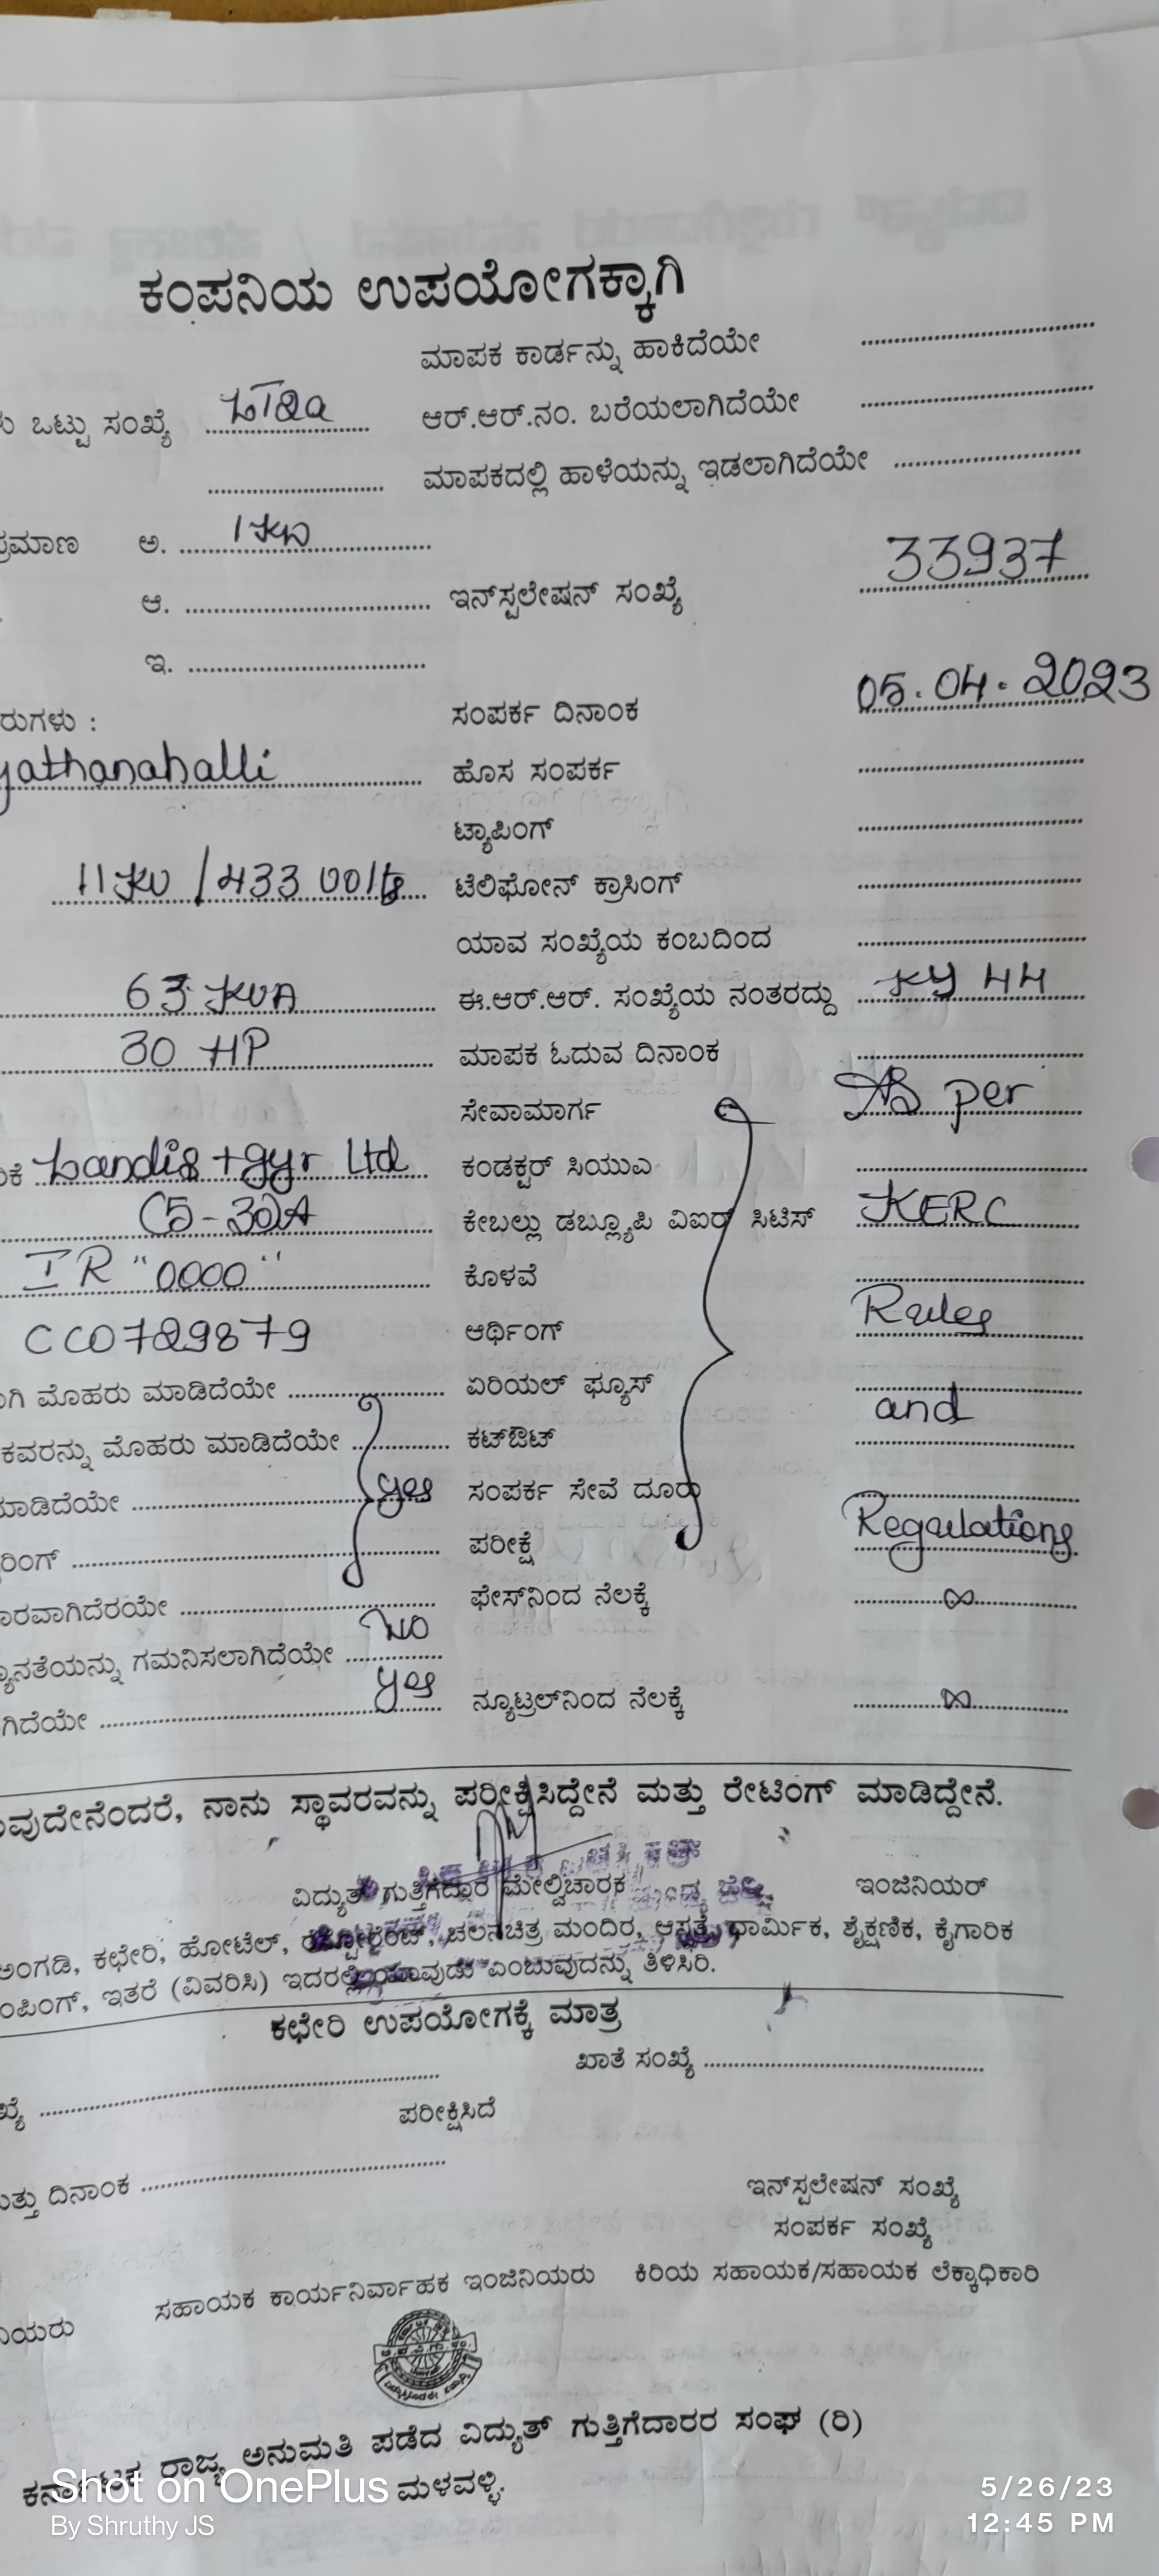 ಕಂಪನಿಯ ಉಪಯೋಗಕ್ಕಾಗಿ
ಮಾಪಕ ಕಾರ್ಡನ್ನು ಹಾಕಿದೆಯೇ
ಒಟ್ಟು ಸಂಖ್ಯೆ ಆರ್.ಆರ್.ನಂ. ಬರೆಯಲಾಗಿದೆಯೇ
ಮಾಪಕದಲ್ಲಿ ಹಾಳೆಯನ್ನು ಇಡಲಾಗಿದೆಯೇ
ಪ್ರಮಾಣ ಅ. 1 KW
ಆ. ಇನ್‌ಸ್ಟಲೇಷನ್ ಸಂಖ್ಯೆ 33937
ಇ.
ರುಗಳು : ಸಂಪರ್ಕ ದಿನಾಂಕ 05.04.2023
yathanahalli ಹೊಸ ಸಂಪರ್ಕ
ಟ್ಯಾಪಿಂಗ್
11 KV / 433 volts ಟೆಲಿಫೋನ್ ಕ್ರಾಸಿಂಗ್
ಯಾವ ಸಂಖ್ಯೆಯ ಕಂಬದಿಂದ
63 KVA ಈ.ಆರ್.ಆರ್. ಸಂಖ್ಯೆಯ ನಂತರದ್ದು KY 44
30 HP ಮಾಪಕ ಓದುವ ದಿನಾಂಕ
ಸೇವಾಮಾರ್ಗ As per
ಕೆ Landis+gyr Ltd ಕಂಡಕ್ಟರ್ ಸಿಯುಎ
(5-30)A ಕೇಬಲ್ಲು ಡಬ್ಲ್ಯೂಪಿ ವಿಐಆರ್ ಸಿಟಿಸ್ KERC
IR "0000" ಕೊಳವೆ
CC0729879 ಆರ್ಥಿಂಗ್ Rules
ಗಿ ಮೊಹರು ಮಾಡಿದೆಯೇ ಏರಿಯಲ್ ಫ್ಯೂಸ್
and
ಕವರನ್ನು ಮೊಹರು ಮಾಡಿದೆಯೇ ಕಟ್‌ಔಟ್
ಮಾಡಿದೆಯೇ yes ಸಂಪರ್ಕ ಸೇವೆ ದೂರು
ರಿಂಗ್ ಪರೀಕ್ಷೆ Regulations
ಾರವಾಗಿದೆರಯೇ ಫೇಸ್‌ನಿಂದ ನೆಲಕ್ಕೆ ∞
ನ್ಯೂನತೆಯನ್ನು ಗಮನಿಸಲಾಗಿದೆಯೇ No
ಗಿದೆಯೇ yes ನ್ಯೂಟ್ರಲ್‌ನಿಂದ ನೆಲಕ್ಕೆ ∞
ವುದೇನೆಂದರೆ, ನಾನು ಸ್ಥಾವರವನ್ನು ಪರೀಕ್ಷಿಸಿದ್ದೇನೆ ಮತ್ತು ರೇಟಿಂಗ್ ಮಾಡಿದ್ದೇನೆ.
ವಿದ್ಯುತ್ ಗುತ್ತಿಗೆದಾರ ಮೇಲ್ವಿಚಾರಕ ಇಂಜಿನಿಯರ್
ಅಂಗಡಿ, ಕಛೇರಿ, ಹೋಟೆಲ್, ರೆಸ್ಟೋರೆಂಟ್, ಚಲನಚಿತ್ರ ಮಂದಿರ, ಆಸ್ಪತ್ರೆ, ಧಾರ್ಮಿಕ, ಶೈಕ್ಷಣಿಕ, ಕೈಗಾರಿಕ
ಂಪಿಂಗ್, ಇತರೆ (ವಿವರಿಸಿ) ಇದರಲ್ಲಿ ಯಾವುದು ಎಂಬುವುದನ್ನು ತಿಳಿಸಿರಿ.
ಕಛೇರಿ ಉಪಯೋಗಕ್ಕೆ ಮಾತ್ರ
ಖಾತೆ ಸಂಖ್ಯೆ
ಖ್ಯೆ
ಪರೀಕ್ಷಿಸಿದೆ
ಮತ್ತು ದಿನಾಂಕ
ಇನ್‌ಸ್ಟಲೇಷನ್ ಸಂಖ್ಯೆ
ಸಂಪರ್ಕ ಸಂಖ್ಯೆ
ನಿಯರು ಸಹಾಯಕ ಕಾರ್ಯನಿರ್ವಾಹಕ ಇಂಜಿನಿಯರು ಕಿರಿಯ ಸಹಾಯಕ/ಸಹಾಯಕ ಲೆಕ್ಕಾಧಿಕಾರಿ
ಕರ್ನಾಟಕ ರಾಜ್ಯ ಅನುಮತಿ ಪಡೆದ ವಿದ್ಯುತ್ ಗುತ್ತಿಗೆದಾರರ ಸಂಘ (ರಿ)
ಮಳವಳ್ಳಿ.
Shot on OnePlus
By Shruthy JS
5/26/23
12:45 PM